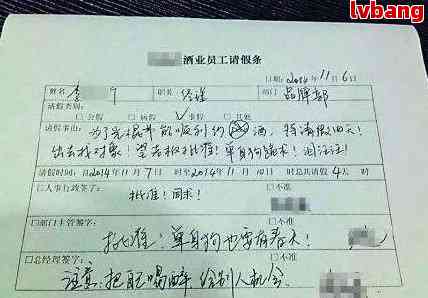 lvbang
酒业员工请假条
日期:2014年11月6日
姓名 李 职务 经理 部门 品牌部
请假类别:
□公假 □病假 ☑事假 □其他
请假事由: 为了光棍节能顺利约 酒,特请假四天!
出去找对象!望老板批准!单身狗跪求!泪汪汪!
请假时间:自2014年11月7日 时至2014年11月10日 时总共请假4天 时
□人事行政签字: 批准!同求! □不准
□部门主管签字: □不准
批准!单身狗也要有春天!
□总经理签字: □不准
注意:把自己喝醉 给别人机会。